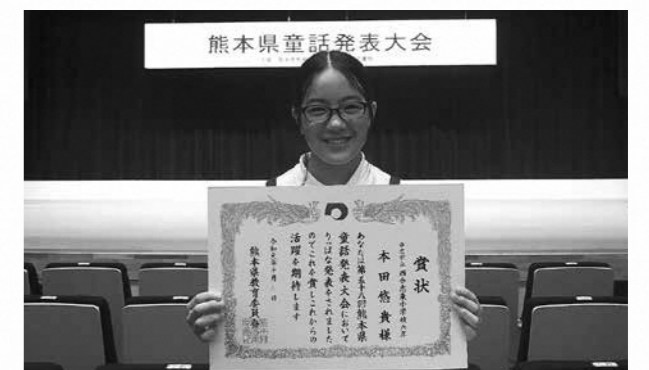 熊本県童話発表大会
賞状
西合志東小学校六年
本田悠貴様
あなたは第五十八回熊本県
童話発表大会において
りっぱな発表をされました
のでこれを賞しこれからの
活躍を期待します
熊本県教育委員会